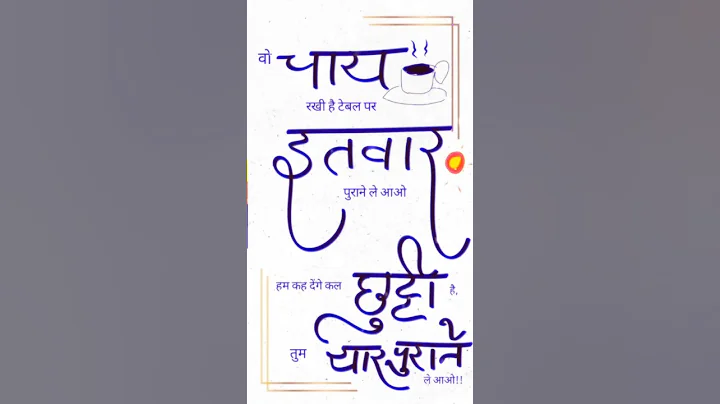 वो चाय
रखी है टेबल पर
इतवार
पुराने ले आओ
हम कह देंगे कल छुट्टी है,
तुम यार पुराने
ले आओ!!